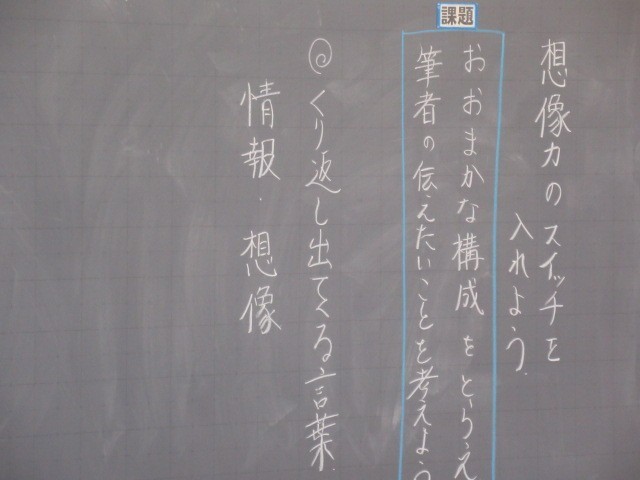 想像力のスイッチを
入れよう.
課題
おおまかな構成をとらえ
筆者の伝えたいことを考えよう
◎くり返し出てくる言葉.
情報・想像